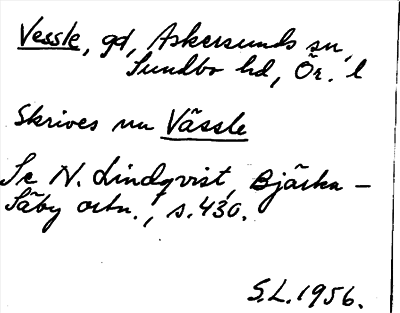 Vessle, gd, Askersunds sn,
Sundbo hd, Ör. l
Skrives nu Vässle
Se N. Lindqvist, Bjärka –
Säby ortn., s. 430.
S.L. 1956.